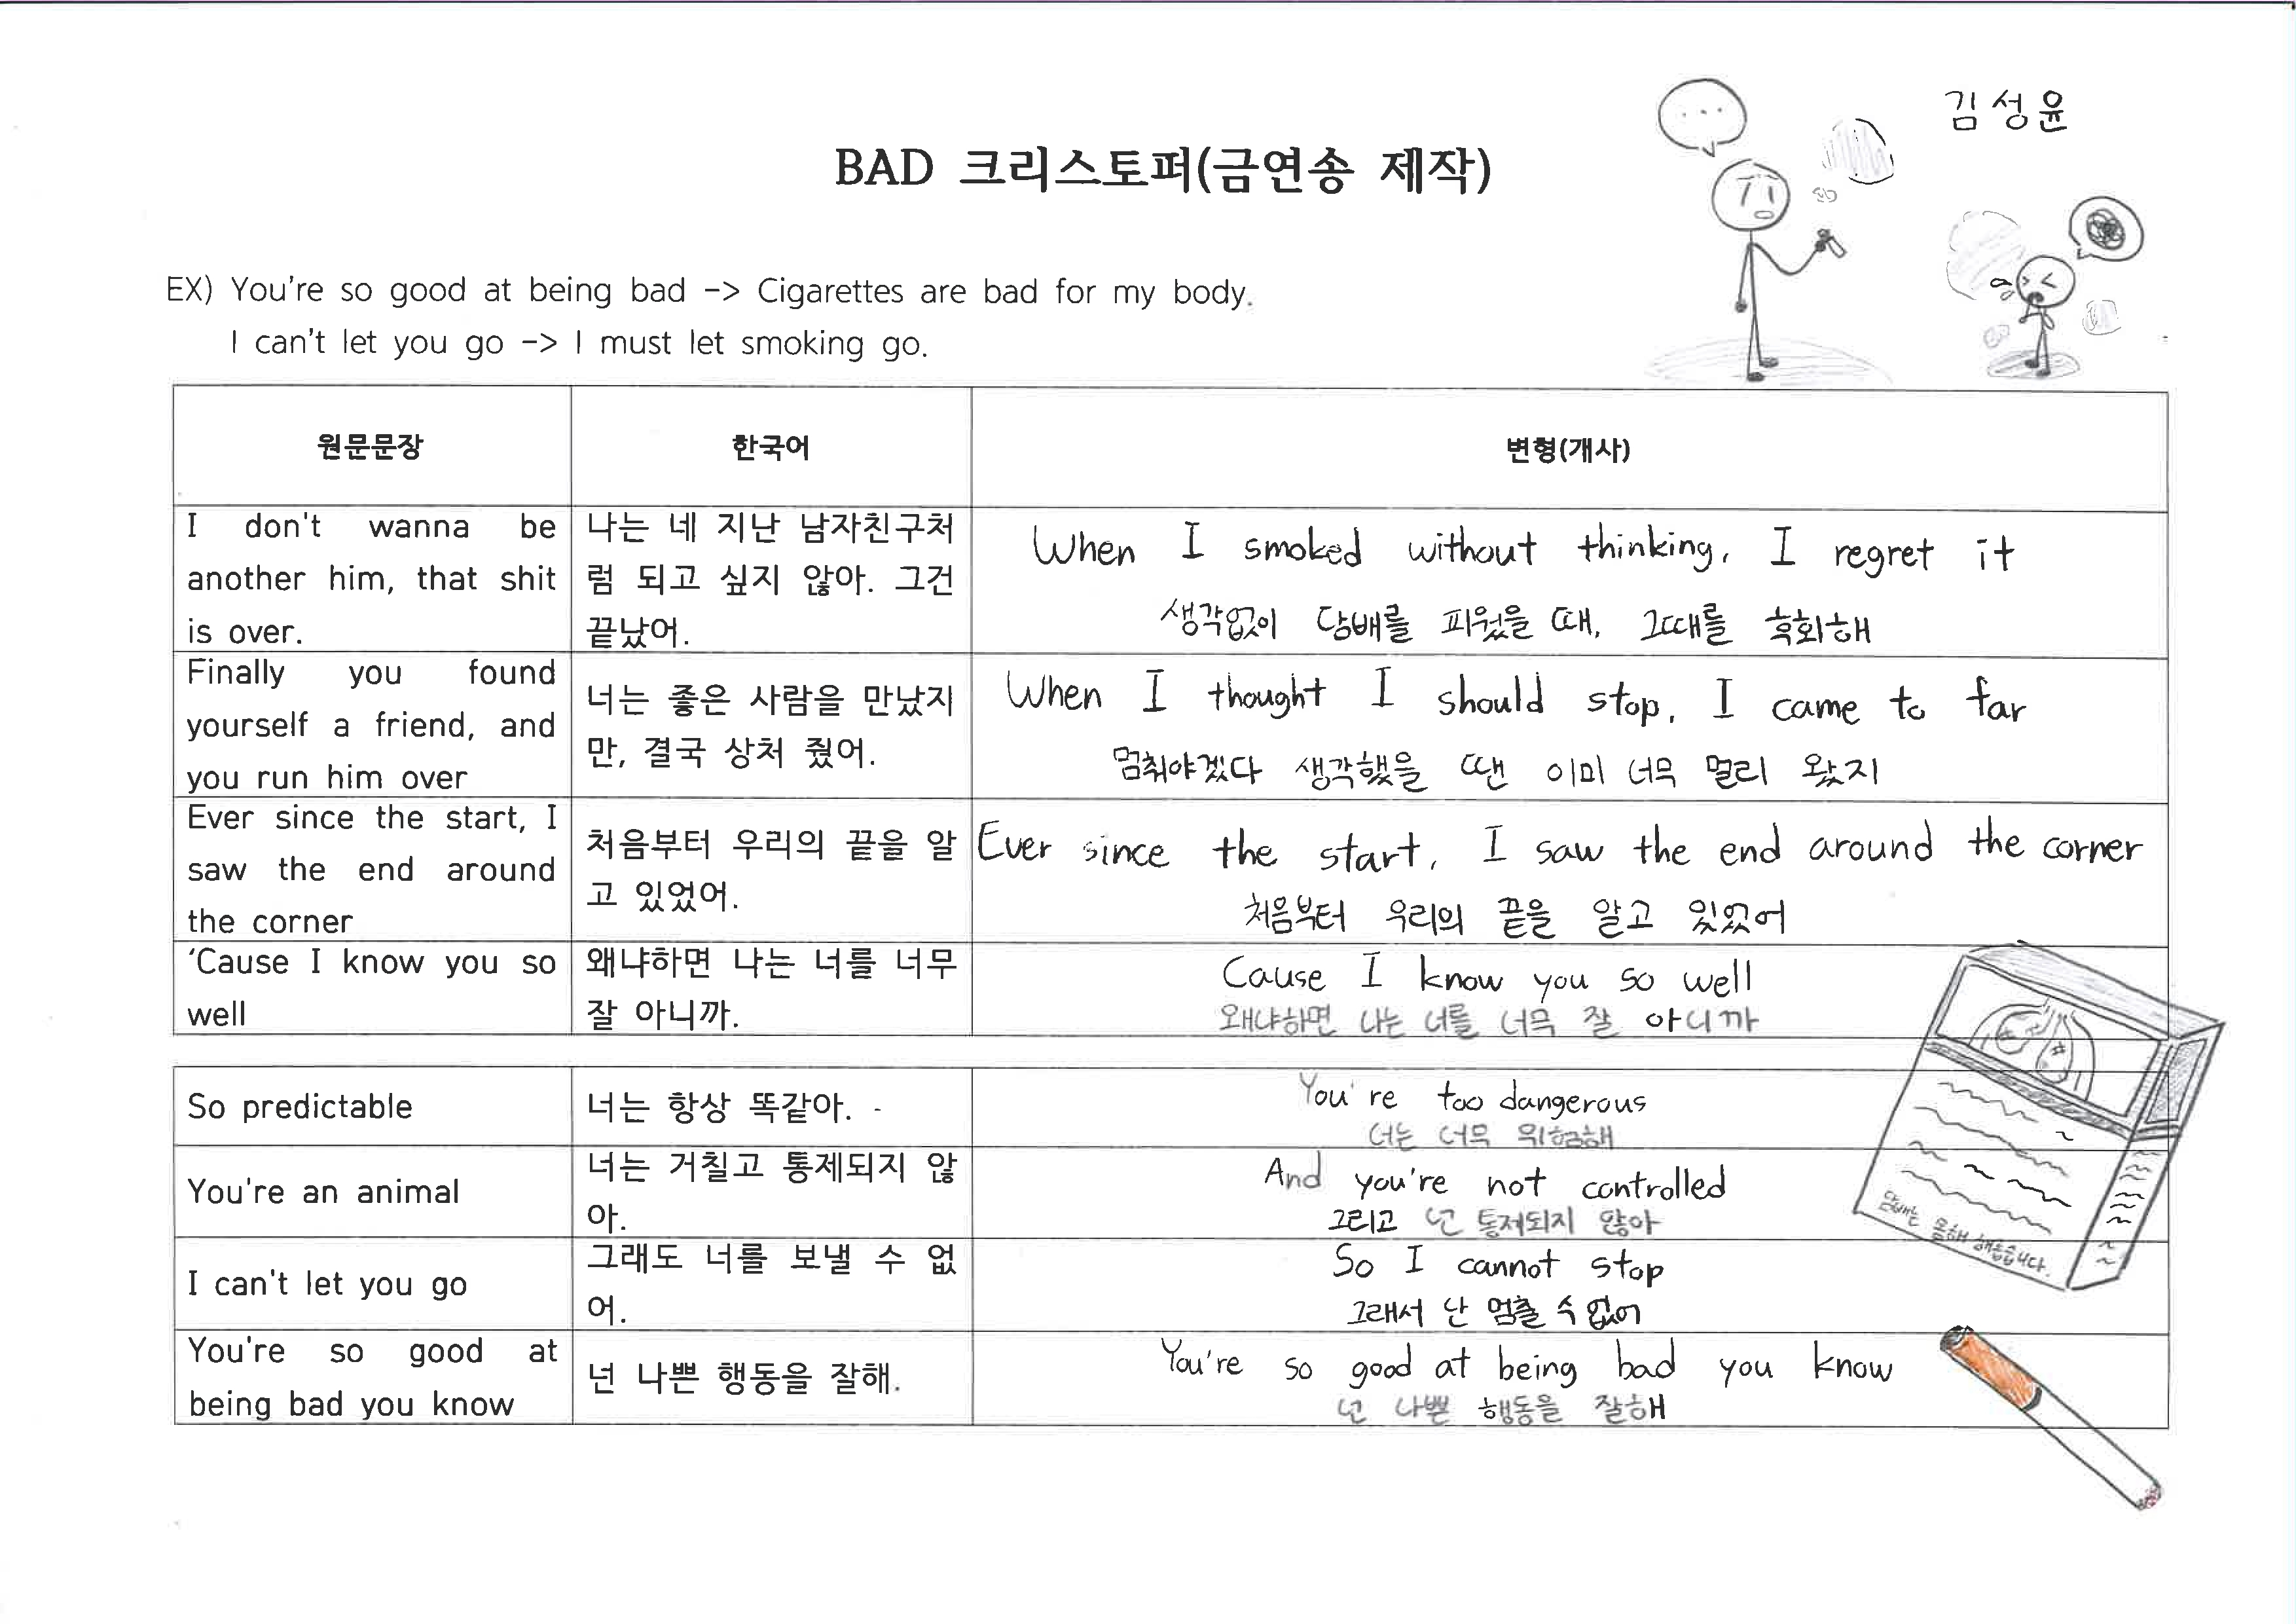 김성윤
BAD 크리스토퍼(금연송 제작)
EX) You're so good at being bad -> Cigarettes are bad for my body.
I can't let you go -> I must let smoking go.
원문문장
한국어
변형(개사)
I don't wanna be
another him, that shit
is over.
나는 네 지난 남자친구처
럼 되고 싶지 않아. 그건
끝났어.
When I smoked without thinking, I regret it
생각없이 담배를 피웠을 때, 그때를 흑회해
Finally you found
yourself a friend, and
you run him over
너는 좋은 사람을 만났지
만, 결국 상처 줬어.
When I thought I should stop, I came to far
멈춰야겠다 생각했을 땐 이미 너무 멀리 왔지
Ever since the start, I
saw the end around
the corner
처음부터 우리의 끝을 알
고 있었어.
Ever since the start, I saw the end around the corner
처음부터 우리의 끝을 알고 있었어
'Cause I know you so
well
왜냐하면 나는 너를 너무
잘 아니까.
Cause I know you so well
왜냐하면 나는 너를 너무 잘 아니까
So predictable
너는 항상 똑같아.
You're too dangerous
너는 너무 위험해
You're an animal
너는 거칠고 통제되지 않
아.
And you're not controlled
그리고 넌 통제되지 않아
I can't let you go
그래도 너를 보낼 수 없
어.
So I cannot stop
그래서 난 멈출 수 없어
You're so good at
being bad you know
넌 나쁜 행동을 잘해.
You're so good at being bad you know
넌 나쁜 행동을 잘해
담배는 몸에 해롭습니다.